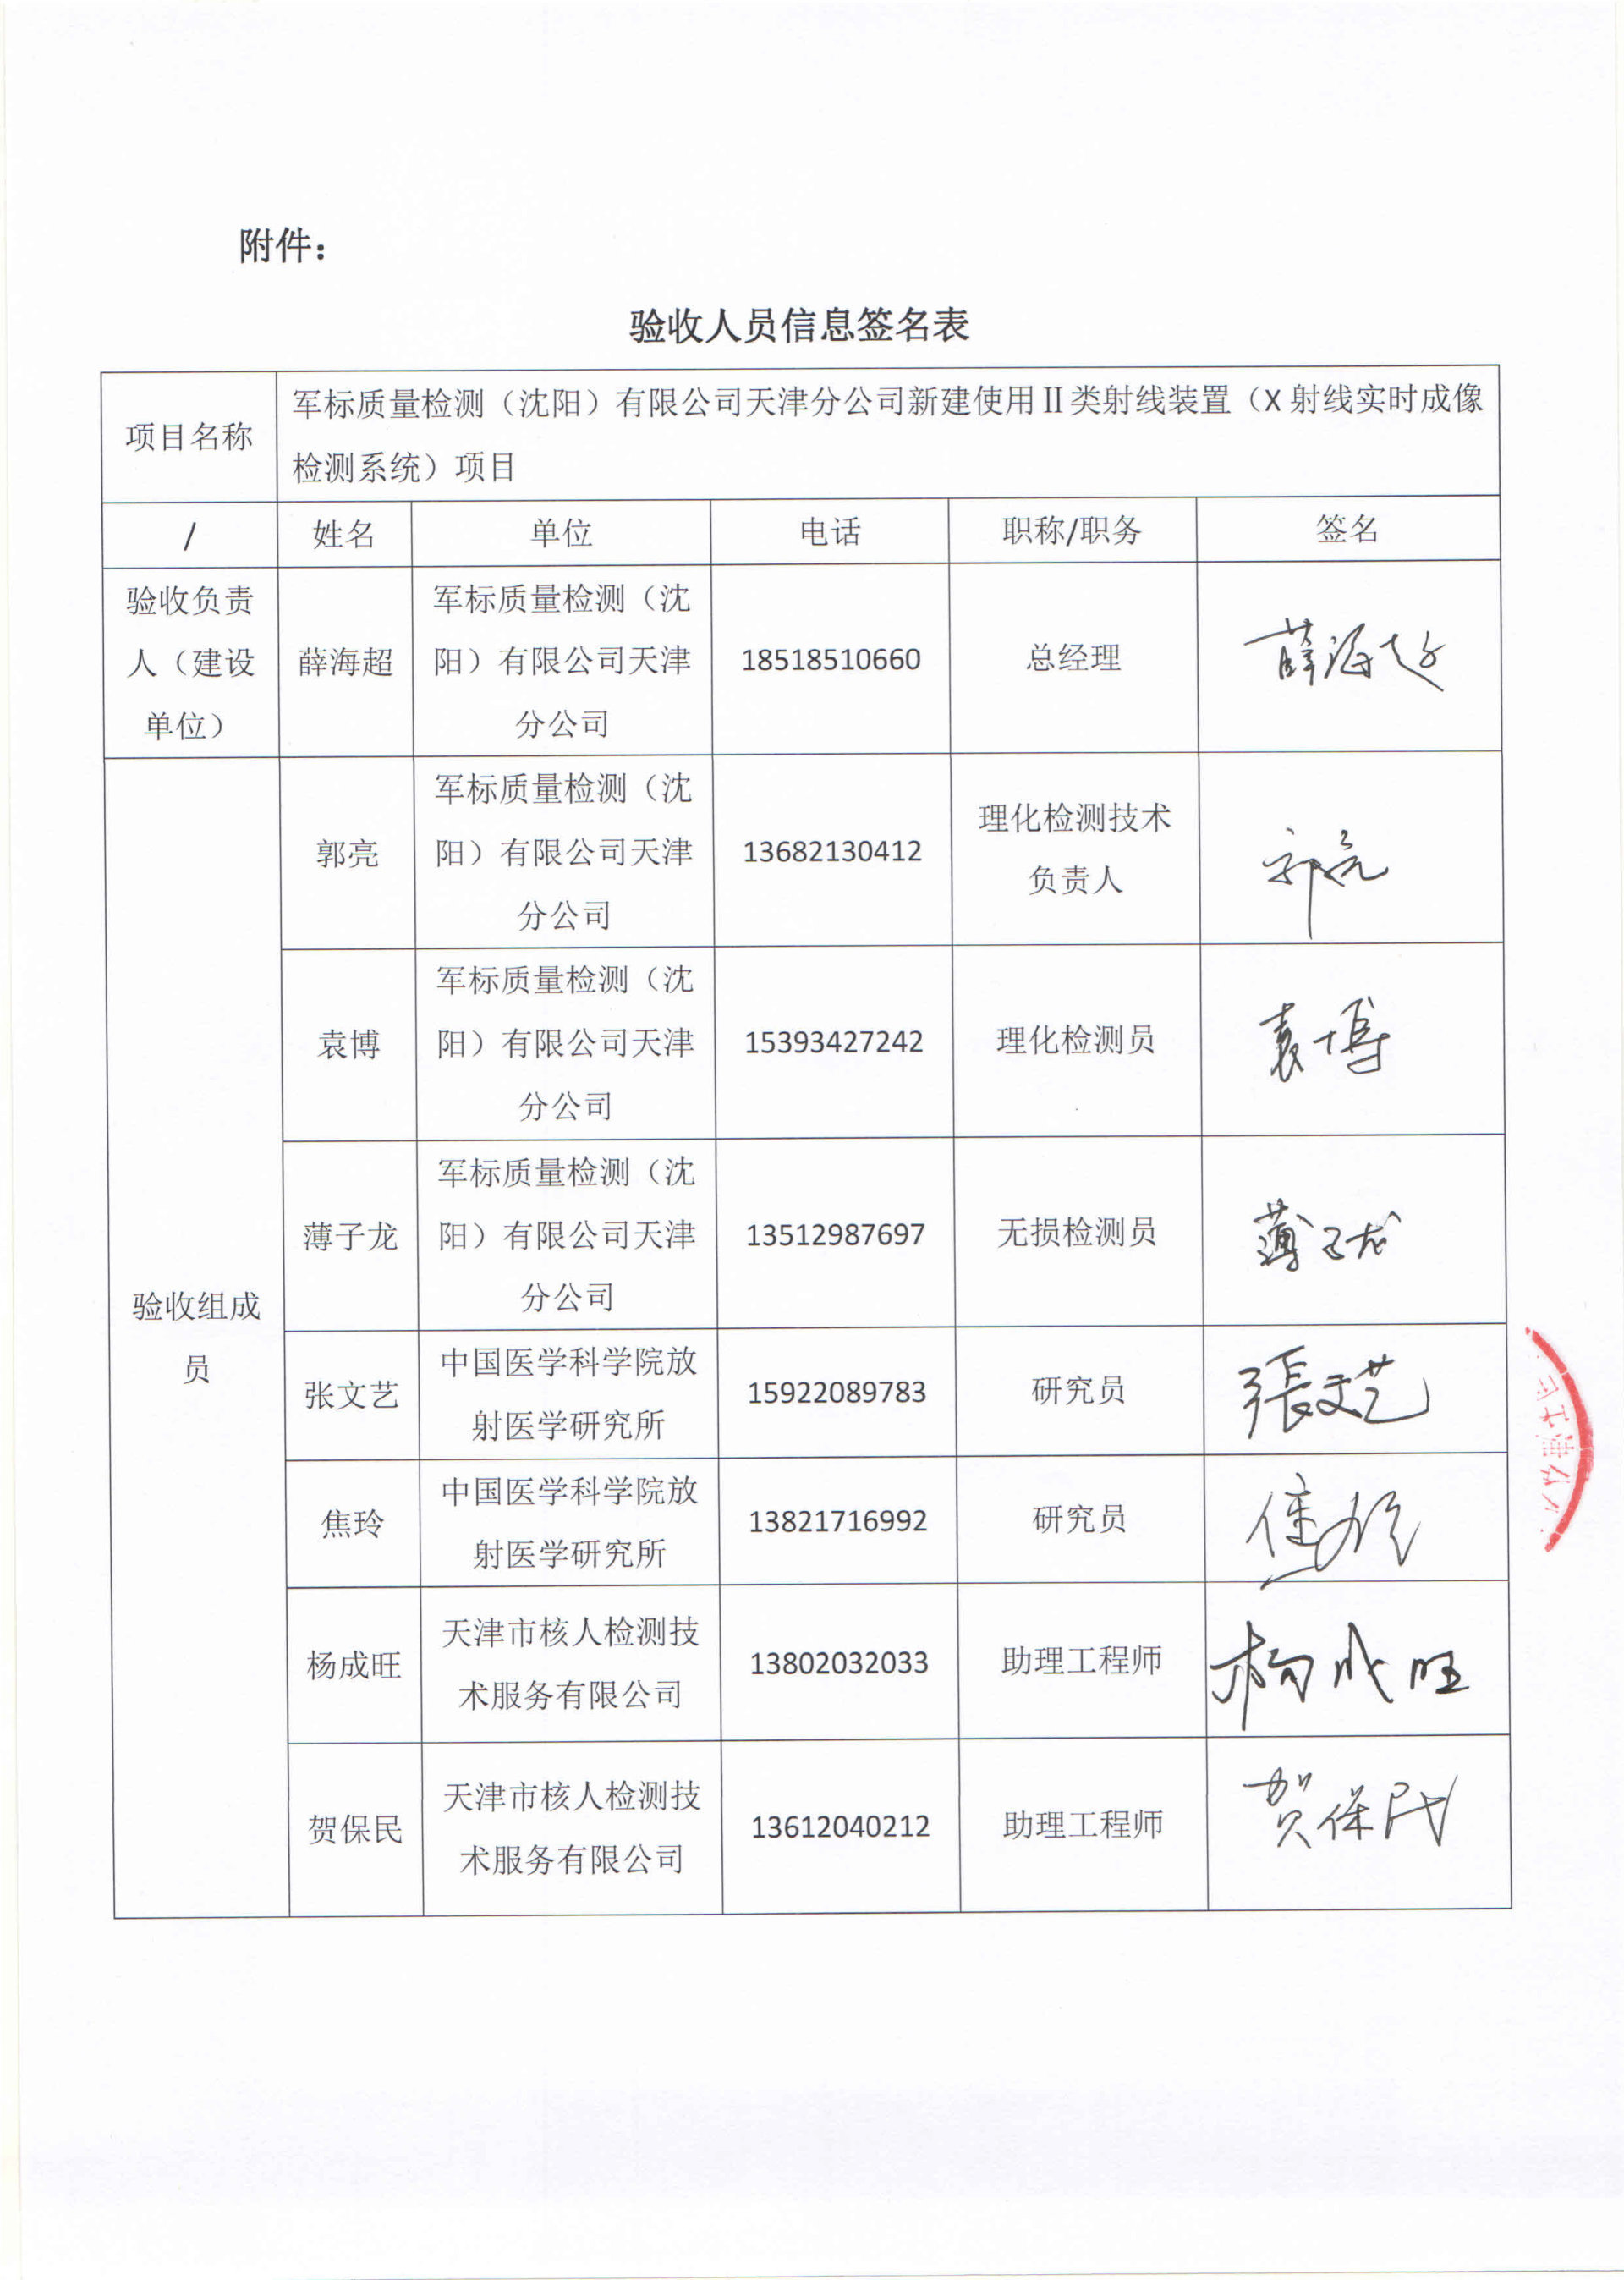 附件：
验收人员信息签名表
项目名称
军标质量检测（沈阳）有限公司天津分公司新建使用Ⅱ类射线装置（X射线实时成像
检测系统）项目
/
姓名
单位
电话
职称/职务
签名
验收负责
人（建设
单位）
薛海超
军标质量检测（沈
阳）有限公司天津
分公司
18518510660
总经理
薛海超
验收组成
员
郭亮
军标质量检测（沈
阳）有限公司天津
分公司
13682130412
理化检测技术
负责人
郭亮
袁博
军标质量检测（沈
阳）有限公司天津
分公司
15393427242
理化检测员
袁博
薄子龙
军标质量检测（沈
阳）有限公司天津
分公司
13512987697
无损检测员
薄子龙
张文艺
中国医学科学院放
射医学研究所
15922089783
研究员
張文艺
焦玲
中国医学科学院放
射医学研究所
13821716992
研究员
焦玲
杨成旺
天津市核人检测技
术服务有限公司
13802032033
助理工程师
杨成旺
贺保民
天津市核人检测技
术服务有限公司
13612040212
助理工程师
贺保民